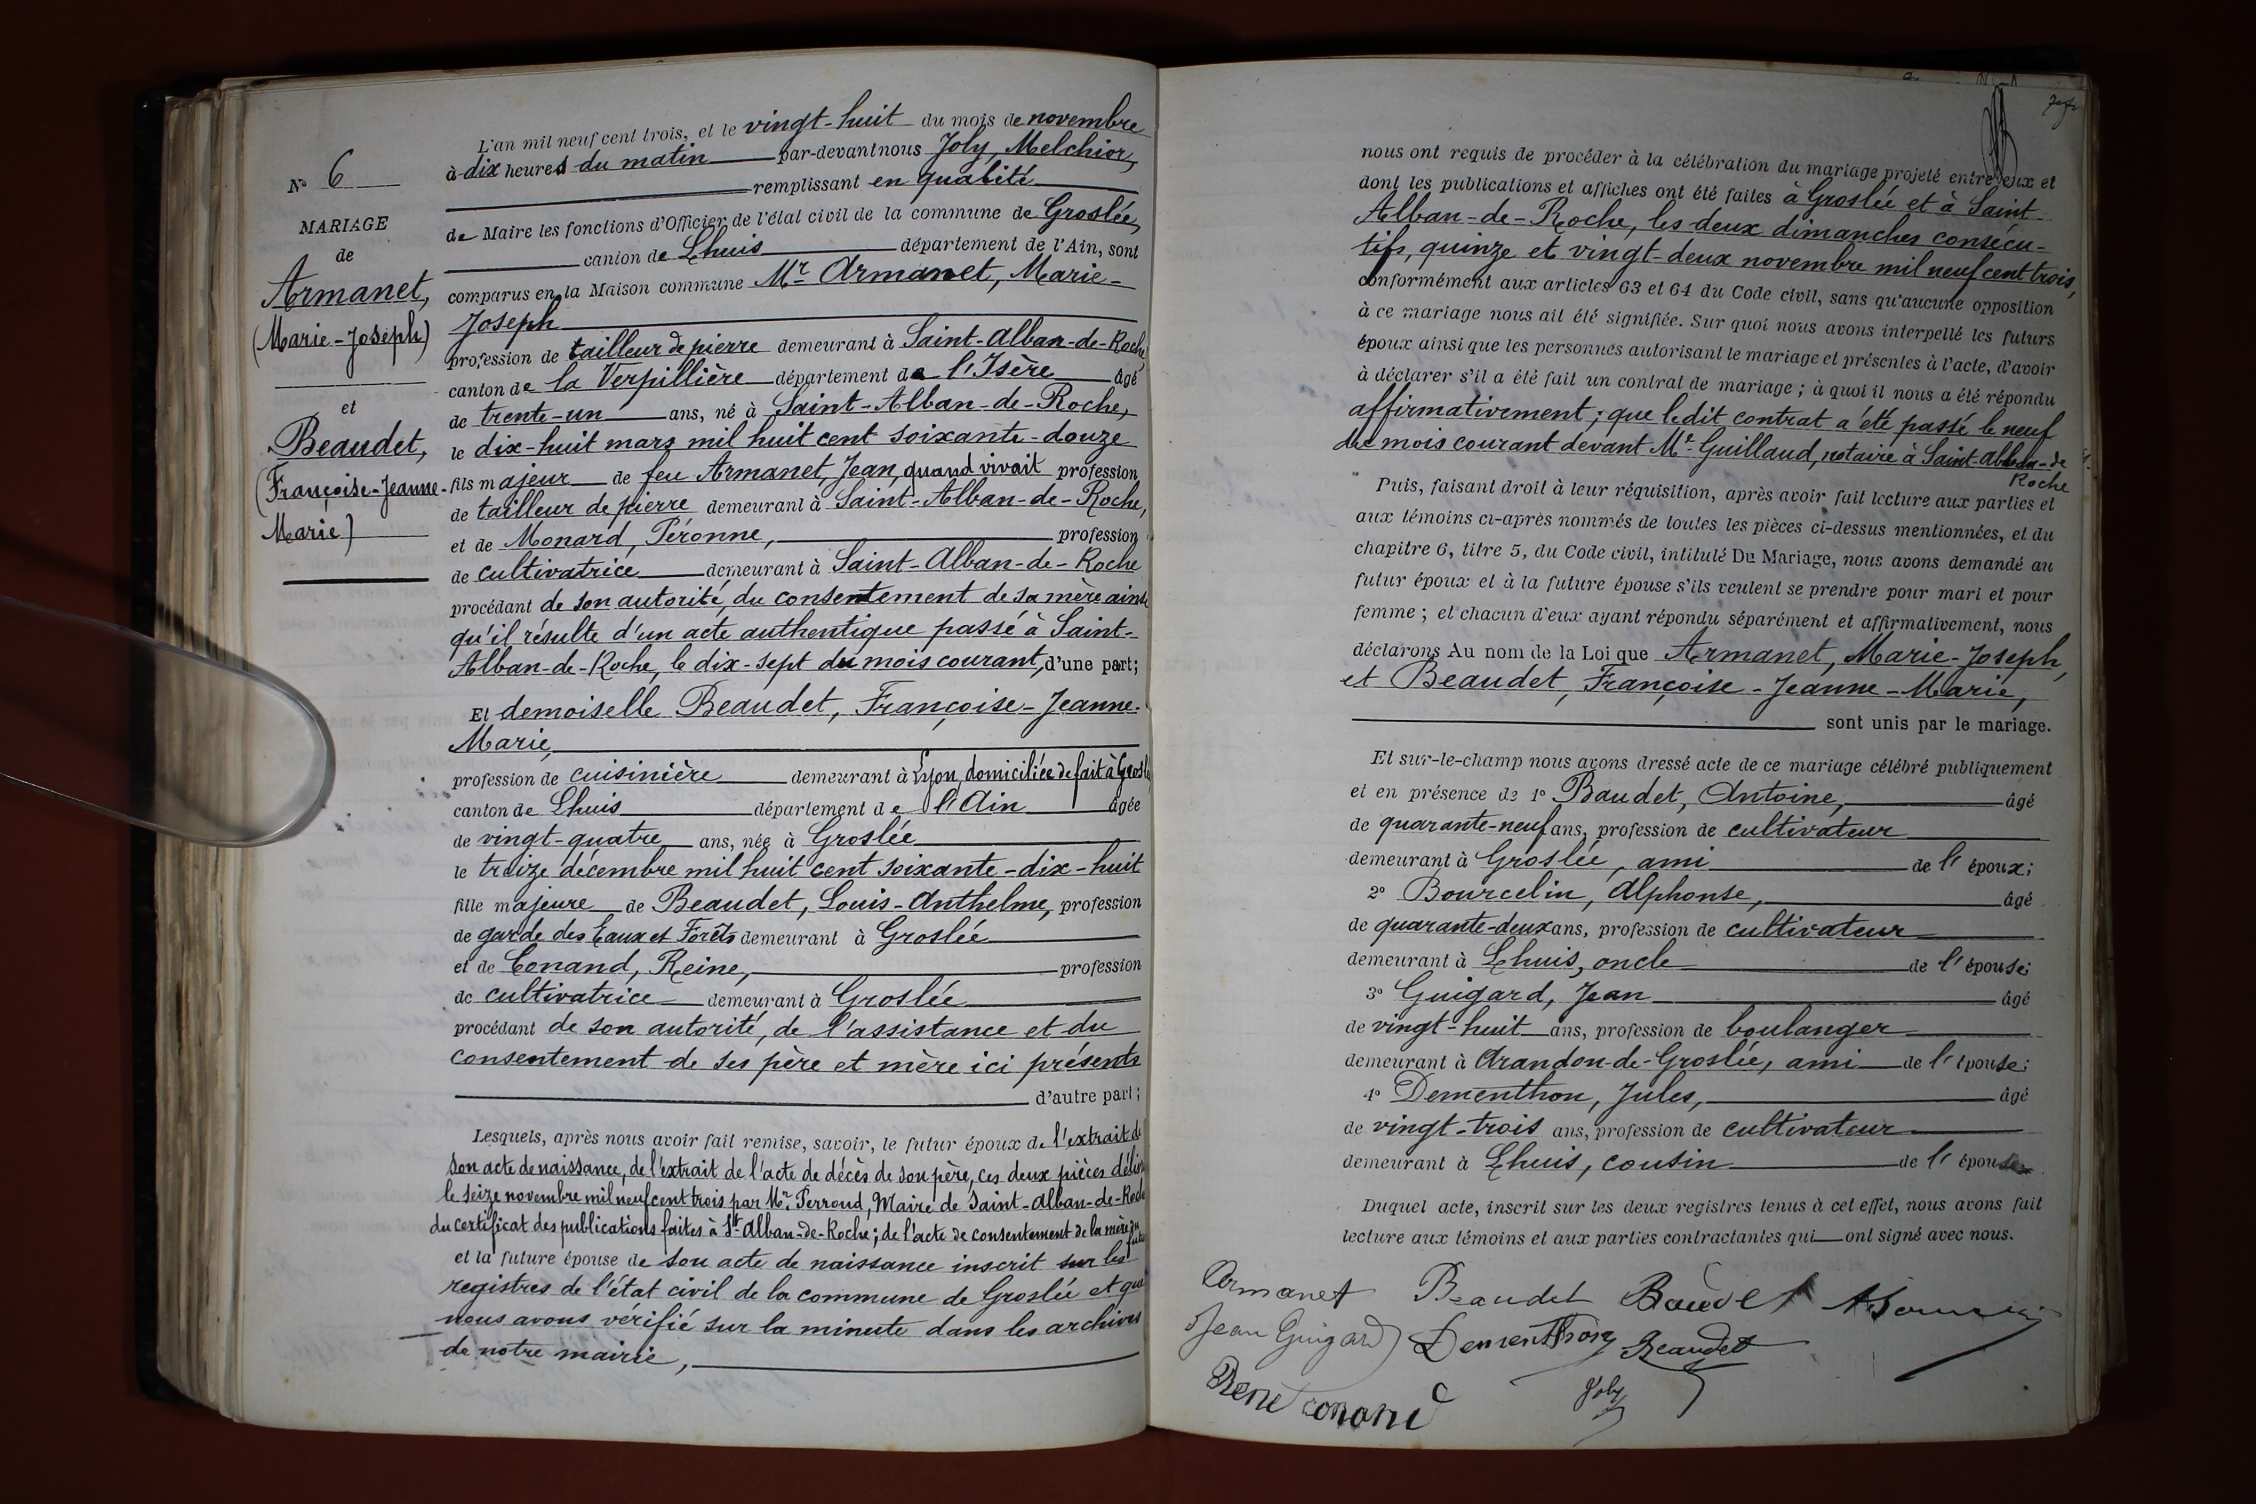 N° 6
MARIAGE
de
Armanet,
(Marie-Joseph)
et
Beaudet,
(Françoise-Jeanne-
Marie)
L'an mil neuf cent trois, et le vingt-huit du mois de novembre
à dix heures du matin par-devant nous Joly, Melchior,
remplissant en qualité
de Maire les fonctions d'Officier de l'état civil de la commune de Groslée,
canton de Lhuis département de l'Ain, sont
comparus en la Maison commune Mr Armanet, Marie-
Joseph
profession de tailleur de pierre demeurant à Saint-Alban-de-Roche
canton de la Verpillière département de l'Isère âgé
de trente-un ans, né à Saint-Alban-de-Roche,
le dix-huit mars mil huit cent soixante-douze
fils majeur de feu Armanet, Jean, quand vivait profession
de tailleur de pierre demeurant à Saint-Alban-de-Roche,
et de Monard, Péronne, profession
de cultivatrice demeurant à Saint-Alban-de-Roche
procédant de son autorité, du consentement de sa mère ainsi
qu'il résulte d'un acte authentique passé à Saint-
Alban-de-Roche, le dix-sept du mois courant, d'une part;
Et demoiselle Beaudet, Françoise-Jeanne-
Marie,
profession de cuisinière demeurant à Lyon, domiciliée de fait à Groslée
canton de Lhuis département de l'Ain âgée
de vingt-quatre ans, née à Groslée
le treize décembre mil huit cent soixante-dix-huit
fille majeure de Beaudet, Louis-Anthelme, profession
de garde des Eaux et Forêts demeurant à Groslée
et de Conand, Reine, profession
de cultivatrice demeurant à Groslée
procédant de son autorité, de l'assistance et du
consentement de ses père et mère ici présents
d'autre part;
Lesquels, après nous avoir fait remise, savoir, le futur époux de l'extrait de
son acte de naissance, de l'extrait de l'acte de décès de son père, ces deux pièces délivrées
le seize novembre mil neuf cent trois par Mr Perroud, Maire de Saint-Alban-de-Roche
du certificat des publications faites à St-Alban-de-Roche; de l'acte de consentement de la mère du
futur
et la future épouse de son acte de naissance inscrit sur les
registres de l'état civil de la commune de Groslée et que
nous avons vérifié sur la minute dans les archives
de notre mairie,
nous ont requis de procéder à la célébration du mariage projeté entre eux et
dont les publications et affiches ont été faites à Groslée et à Saint-
Alban-de-Roche, les deux dimanches consécu-
tifs, quinze et vingt-deux novembre mil neuf cent trois,
conformément aux articles 63 et 64 du Code civil, sans qu'aucune opposition
à ce mariage nous ait été signifiée. Sur quoi nous avons interpellé les futurs
époux ainsi que les personnes autorisant le mariage et présentes à l'acte, d'avoir
à déclarer s'il a été fait un contrat de mariage; à quoi il nous a été répondu
affirmativement; que le dit contrat a été passé le neuf
du mois courant devant Me Guillaud, notaire à Saint-Alban-de
Roche
Puis, faisant droit à leur réquisition, après avoir fait lecture aux parties et
aux témoins ci-après nommés de toutes les pièces ci-dessus mentionnées, et du
chapitre 6, titre 5, du Code civil, intitulé Du Mariage, nous avons demandé au
futur époux et à la future épouse s'ils veulent se prendre pour mari et pour
femme; et chacun d'eux ayant répondu séparément et affirmativement, nous
déclarons Au nom de la Loi que Armanet, Marie-Joseph,
et Beaudet, Françoise-Jeanne-Marie,
sont unis par le mariage.
Et sur-le-champ nous avons dressé acte de ce mariage célébré publiquement
et en présence de 1° Baudet, Antoine, âgé
de quarante-neuf ans, profession de cultivateur
demeurant à Groslée, ami de l'époux;
2° Bourcelin, Alphonse, âgé
de quarante-deux ans, profession de cultivateur
demeurant à Lhuis, oncle de l'épouse;
3° Guigard, Jean âgé
de vingt-huit ans, profession de boulanger
demeurant à Arandon-de-Groslée, ami de l'épouse;
4° Dementhon, Jules, âgé
de vingt-trois ans, profession de cultivateur
demeurant à Lhuis, cousin de l'épouse
Duquel acte, inscrit sur les deux registres tenus à cet effet, nous avons fait
lecture aux témoins et aux parties contractantes qui ont signé avec nous.
Armanet Beaudet Baudet
Jean Guigard Dementhon Beaudet
Rene conand Joly